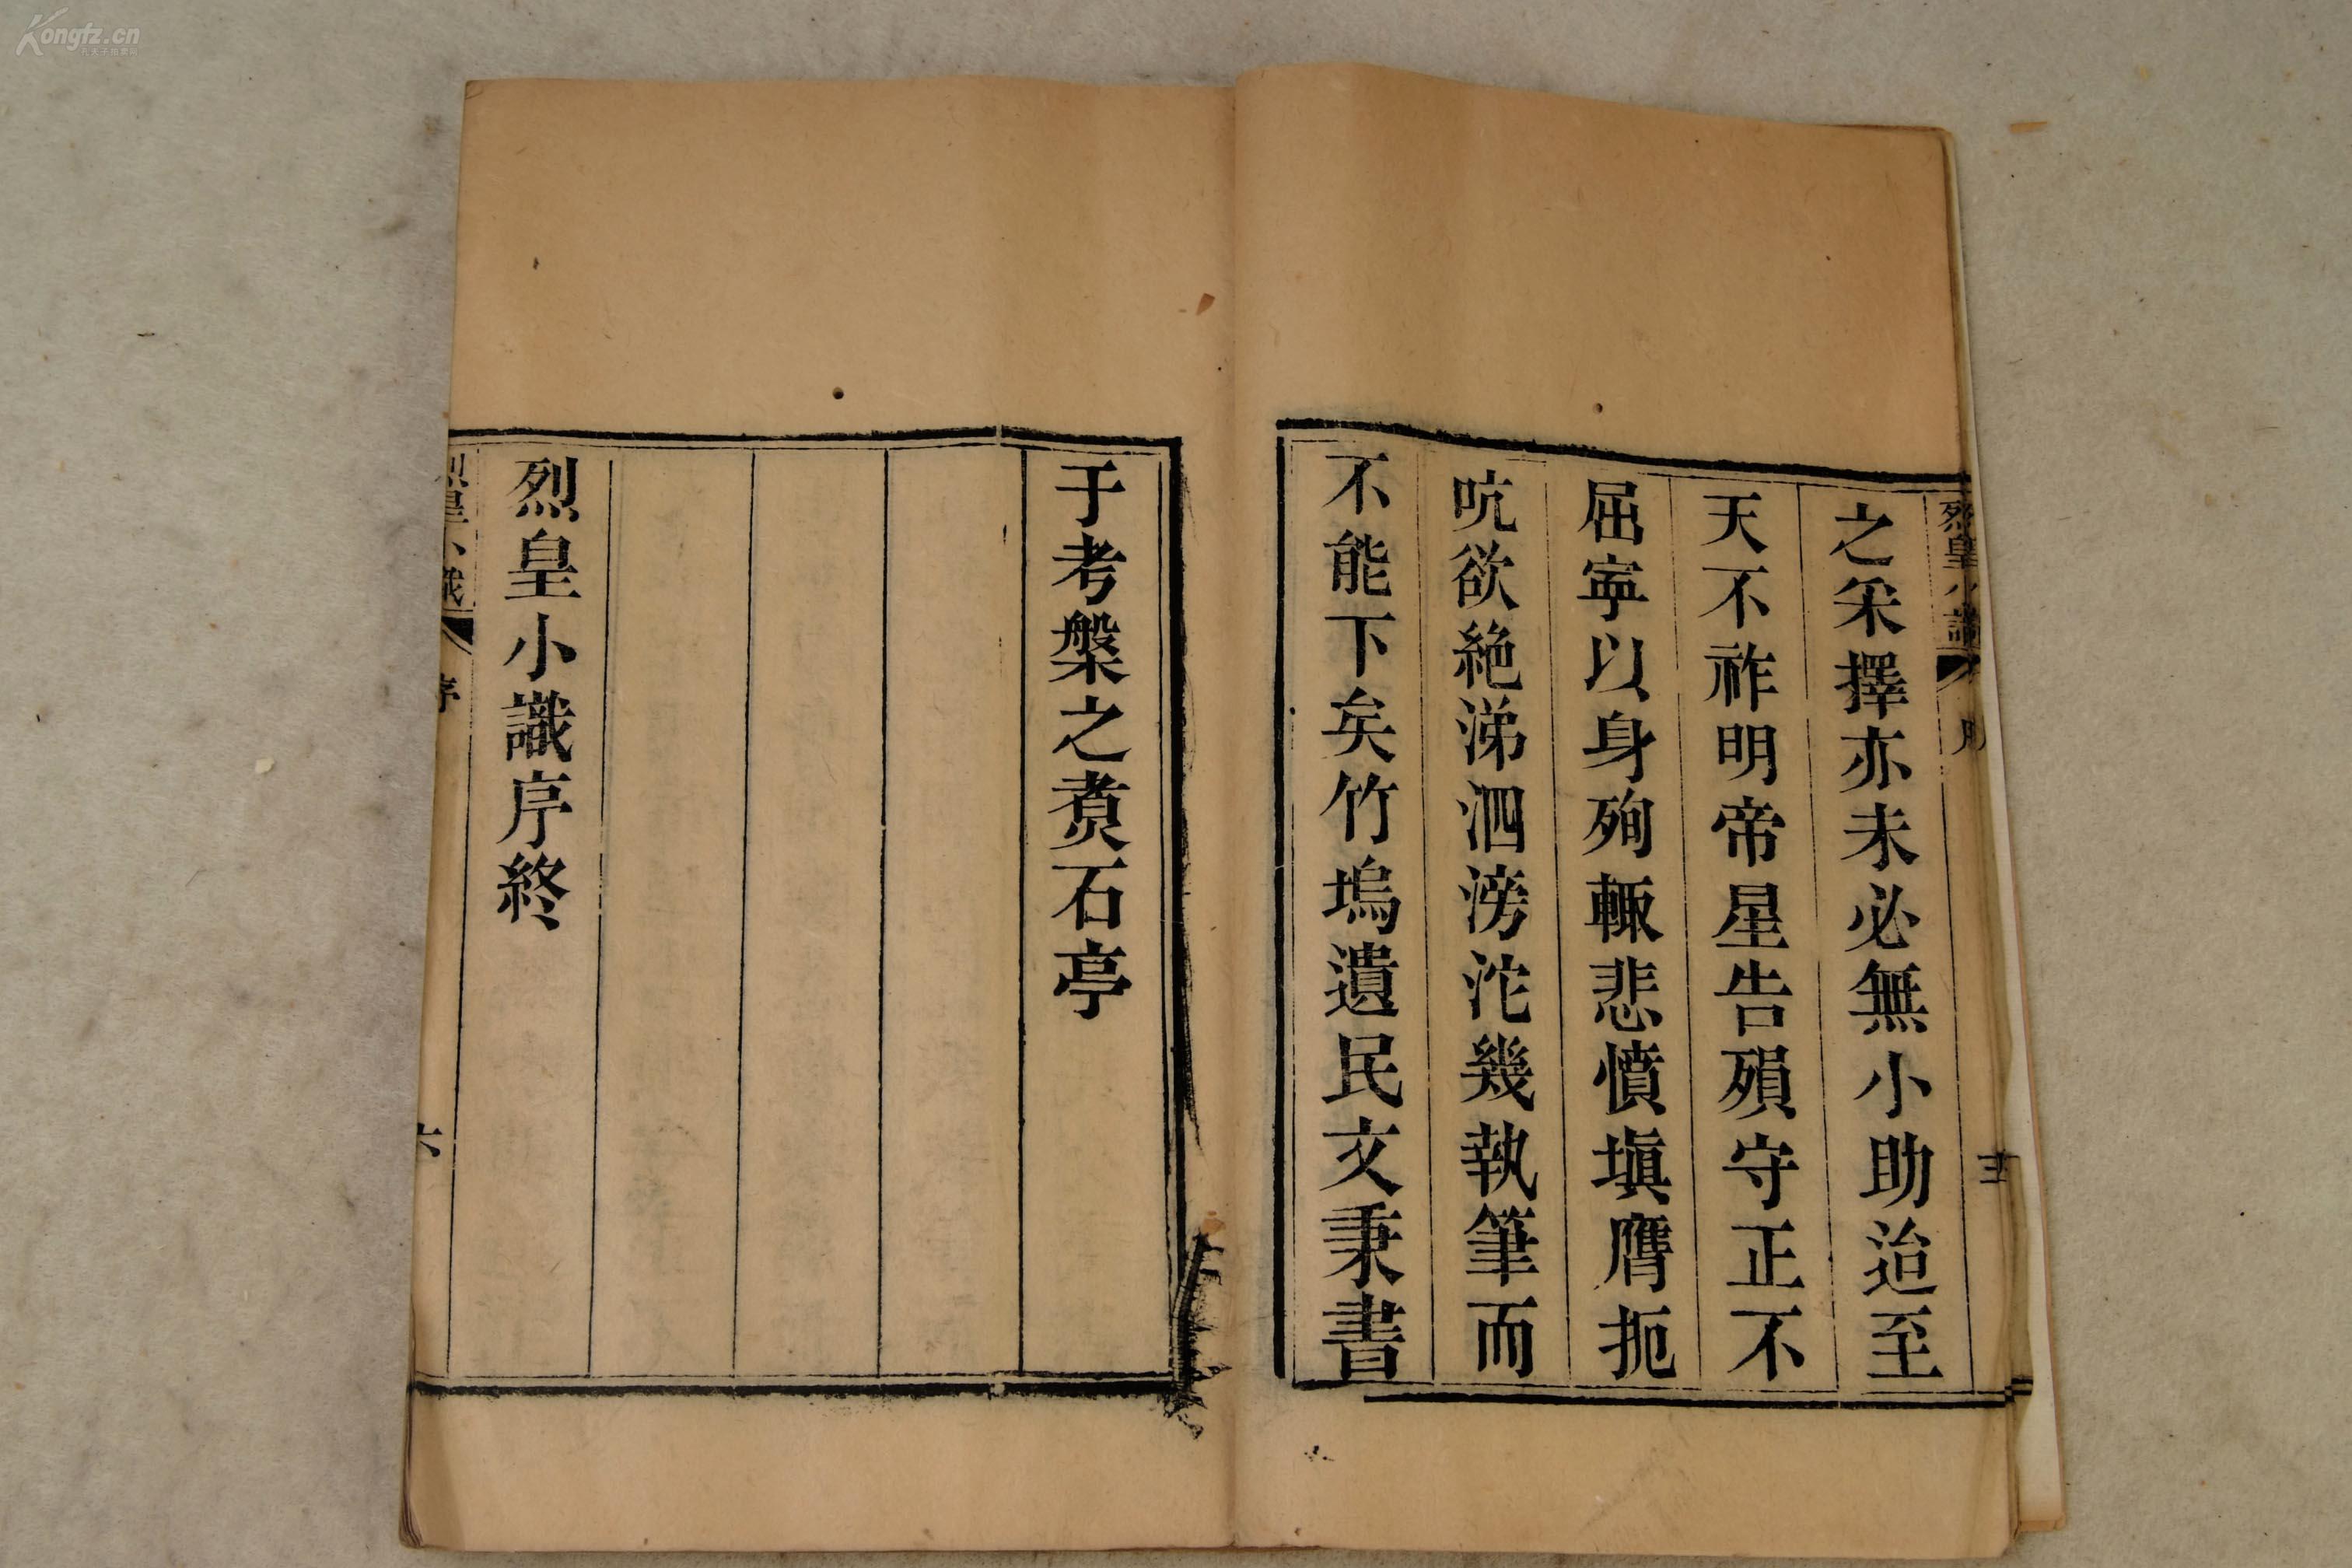 之采擇亦未必無小助迨至
天不祚明帝星告殞守正不
屈寧以身殉輒悲憤塡膺扼
吭欲絶涕泗滂沱幾執筆而
不能下矣竹塢遺民文秉書
于考槃之煑石亭
烈皇小識序終
烈皇小識
序
六
Kongfz.cn